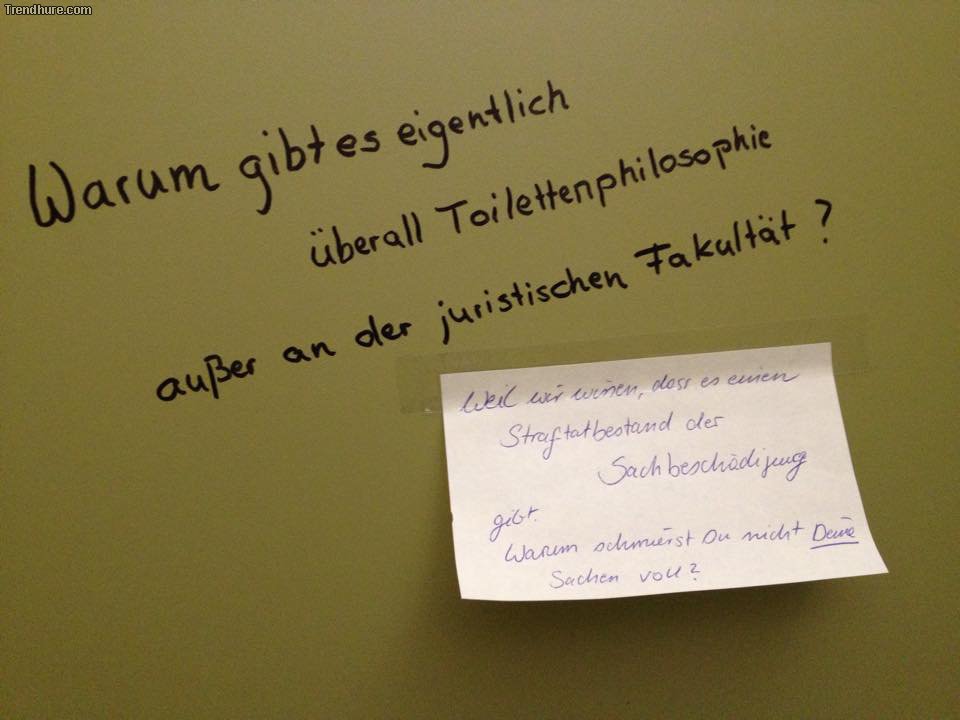 Trendhure.com
Warum gibt es eigentlich
überall Toilettenphilosophie
außer an der juristischen Fakultät?
Weil wir wissen, dass es einen
Straftatbestand der
Sachbeschädigung
gibt.
Warum schmierst Du nicht Deine
Sachen voll?